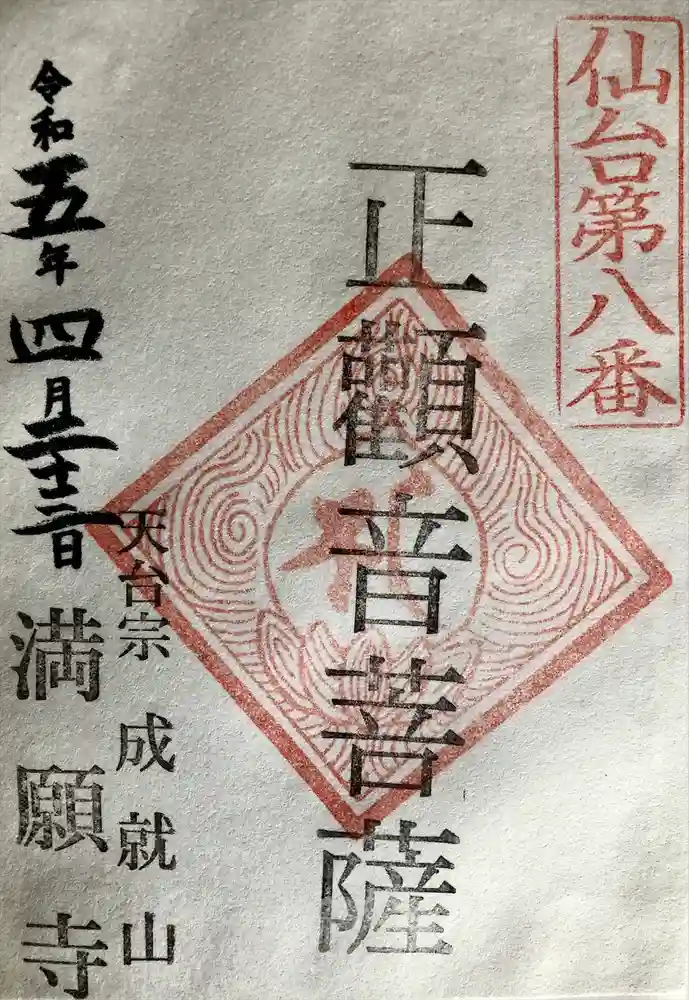 仙台第八番
正顴音菩薩
天台宗 成就山
満願寺
令和五年四月二十三日